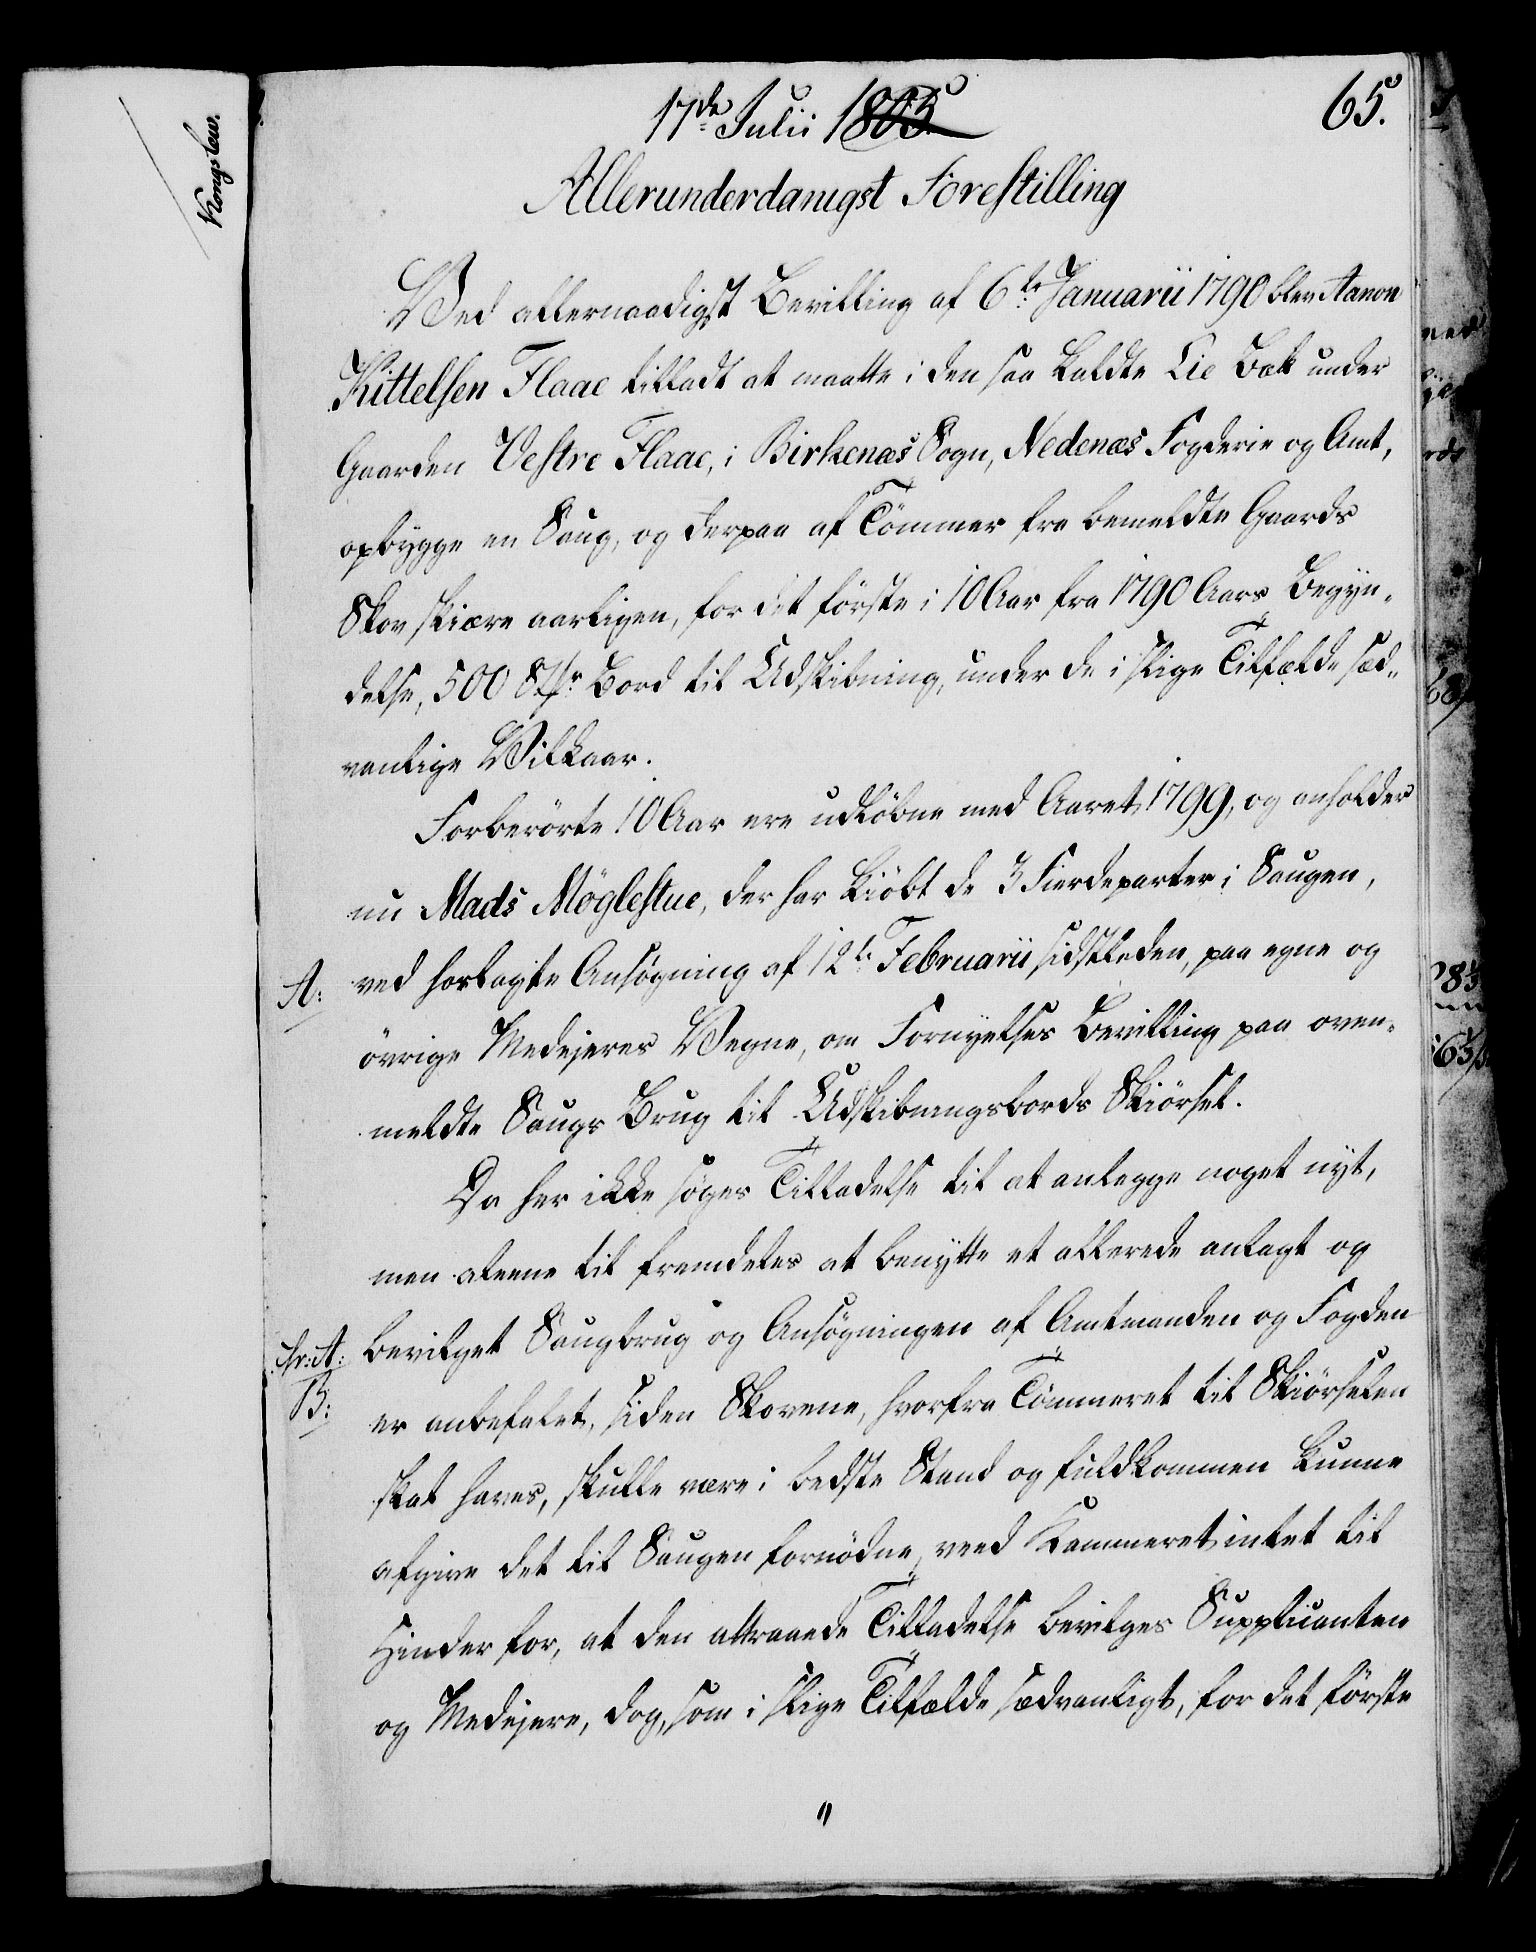 Kongslew.
17de Julii 1805
65.
Allerunderdanigst Forestilling
Ved allernaadigst Bevilling af 6te Januarii 1790 blev Aanon
Kittelsen Flaae tilladt at maatte i den saa kaldte Lie Bæk under
Gaarden Vestre Flaae, i Birkenæs Sogn, Nedenæs Fogderie og Amt,
opbygge en Saug, og derpaa af Tömmer fra bemeldte Gaards
Skov skiære aarligen, for det förste i 10 Aar fra 1790 Aars Begyn-
delse, 500 Stkr Bord til Udskibning, under de i slige Tilfælde sæd-
vanlige Vilkaar.
Forberörte 10 Aar ere udlöbne med Aaret 1799, og anholder
nu Mads Möglestue, der har kiöbt de 3 Fierdeparter i Saugen,
A: ved hoslagte Ansögning af 12te Februarii sidstleden, paa egne og
övrige Medejeres Vegne, om Fornyelses Bevilling paa oven-
meldte Saugs Brug til Udskibningsbords Skiörsel.
Da her ikke söges Tilladelse til at anlegge noget nyt,
men alene til fremdeles at benytte et allerede anlagt og
bevilget Saugbrug og Ansögningen af Amtmanden og Fogden
B: er anbefalet, siden Skovene, hvorfra Tömmeret til Skiörselen
skal haves, skulle være i bedste Stand og fuldkommen kunne
afgive det til Saugen fornödne, veed Kammeret intet til
Hinder for, at den attraaede Tilladelse bevilges Supplicanten
og Medejere, dog, som i slige Tilfælde sædvanligt, for det förste